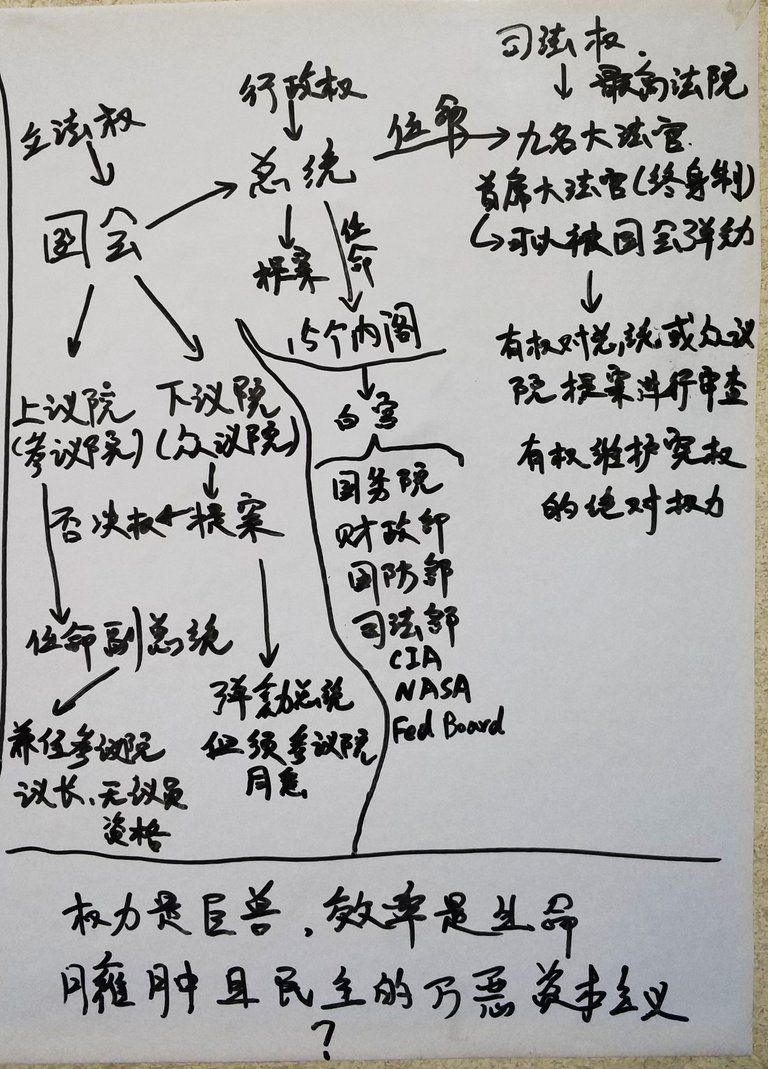 立法权
国会
上议院
(参议院)
下议院
(众议院)
否决权
提案
任命副总统
兼任参议院
议长、无议员
资格
弹劾总统
但须参议院
同意
行政权
总统
提案
任命
15个内阁
白宫
国务院
财政部
国防部
司法部
CIA
NASA
Fed Board
任命
司法权.
最高法院
九名大法官.
首席大法官(终身制)
可以被国会弹劾
有权对总统或众议
院提案进行审查
有权维护宪权
的绝对权力
权力是巨兽、效率是生命
臃肿且民主的万恶资本主义
?